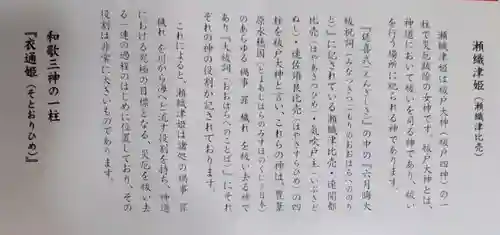 瀬織津姫（瀬織津比売）
瀬織津姫は祓戸大神（祓戸四神）の一
柱で災厄抜除の女神です。祓戸大神とは、
神道において祓いを司る神であり、祓い
を行う場所に祀られる神であります。
『延喜式（えんぎしき）』の中の『六月晦大
祓祝詞（みなづきつごもりのおおはらへののり
と）』に記されている瀬織津比売・速開都
比売（はやあきつひめ）・気吹戸主（いぶきど
ぬし）・速佐須良比売（はやさすらひめ）の四
柱を祓戸大神と言い、これらの神は、豊葦
原水穂国（とよあしはらのみずほのくに＝日本）
のあらゆる 禍事 罪 穢れ を祓い去る神で
あり『大祓詞（おおはらへのことば）』にそれ
ぞれの神の役割が記されております。
これによると、瀬織津姫は諸処の禍事 罪
穢れ を川から海へと流す役割を持ち、神道
における究極の目標となる、災厄を祓い去
る一連の過程のはじめに位置しており、その
役割は非常に大きいものであります。
和歌三神の一柱
『衣通姫（そとおりひめ）』